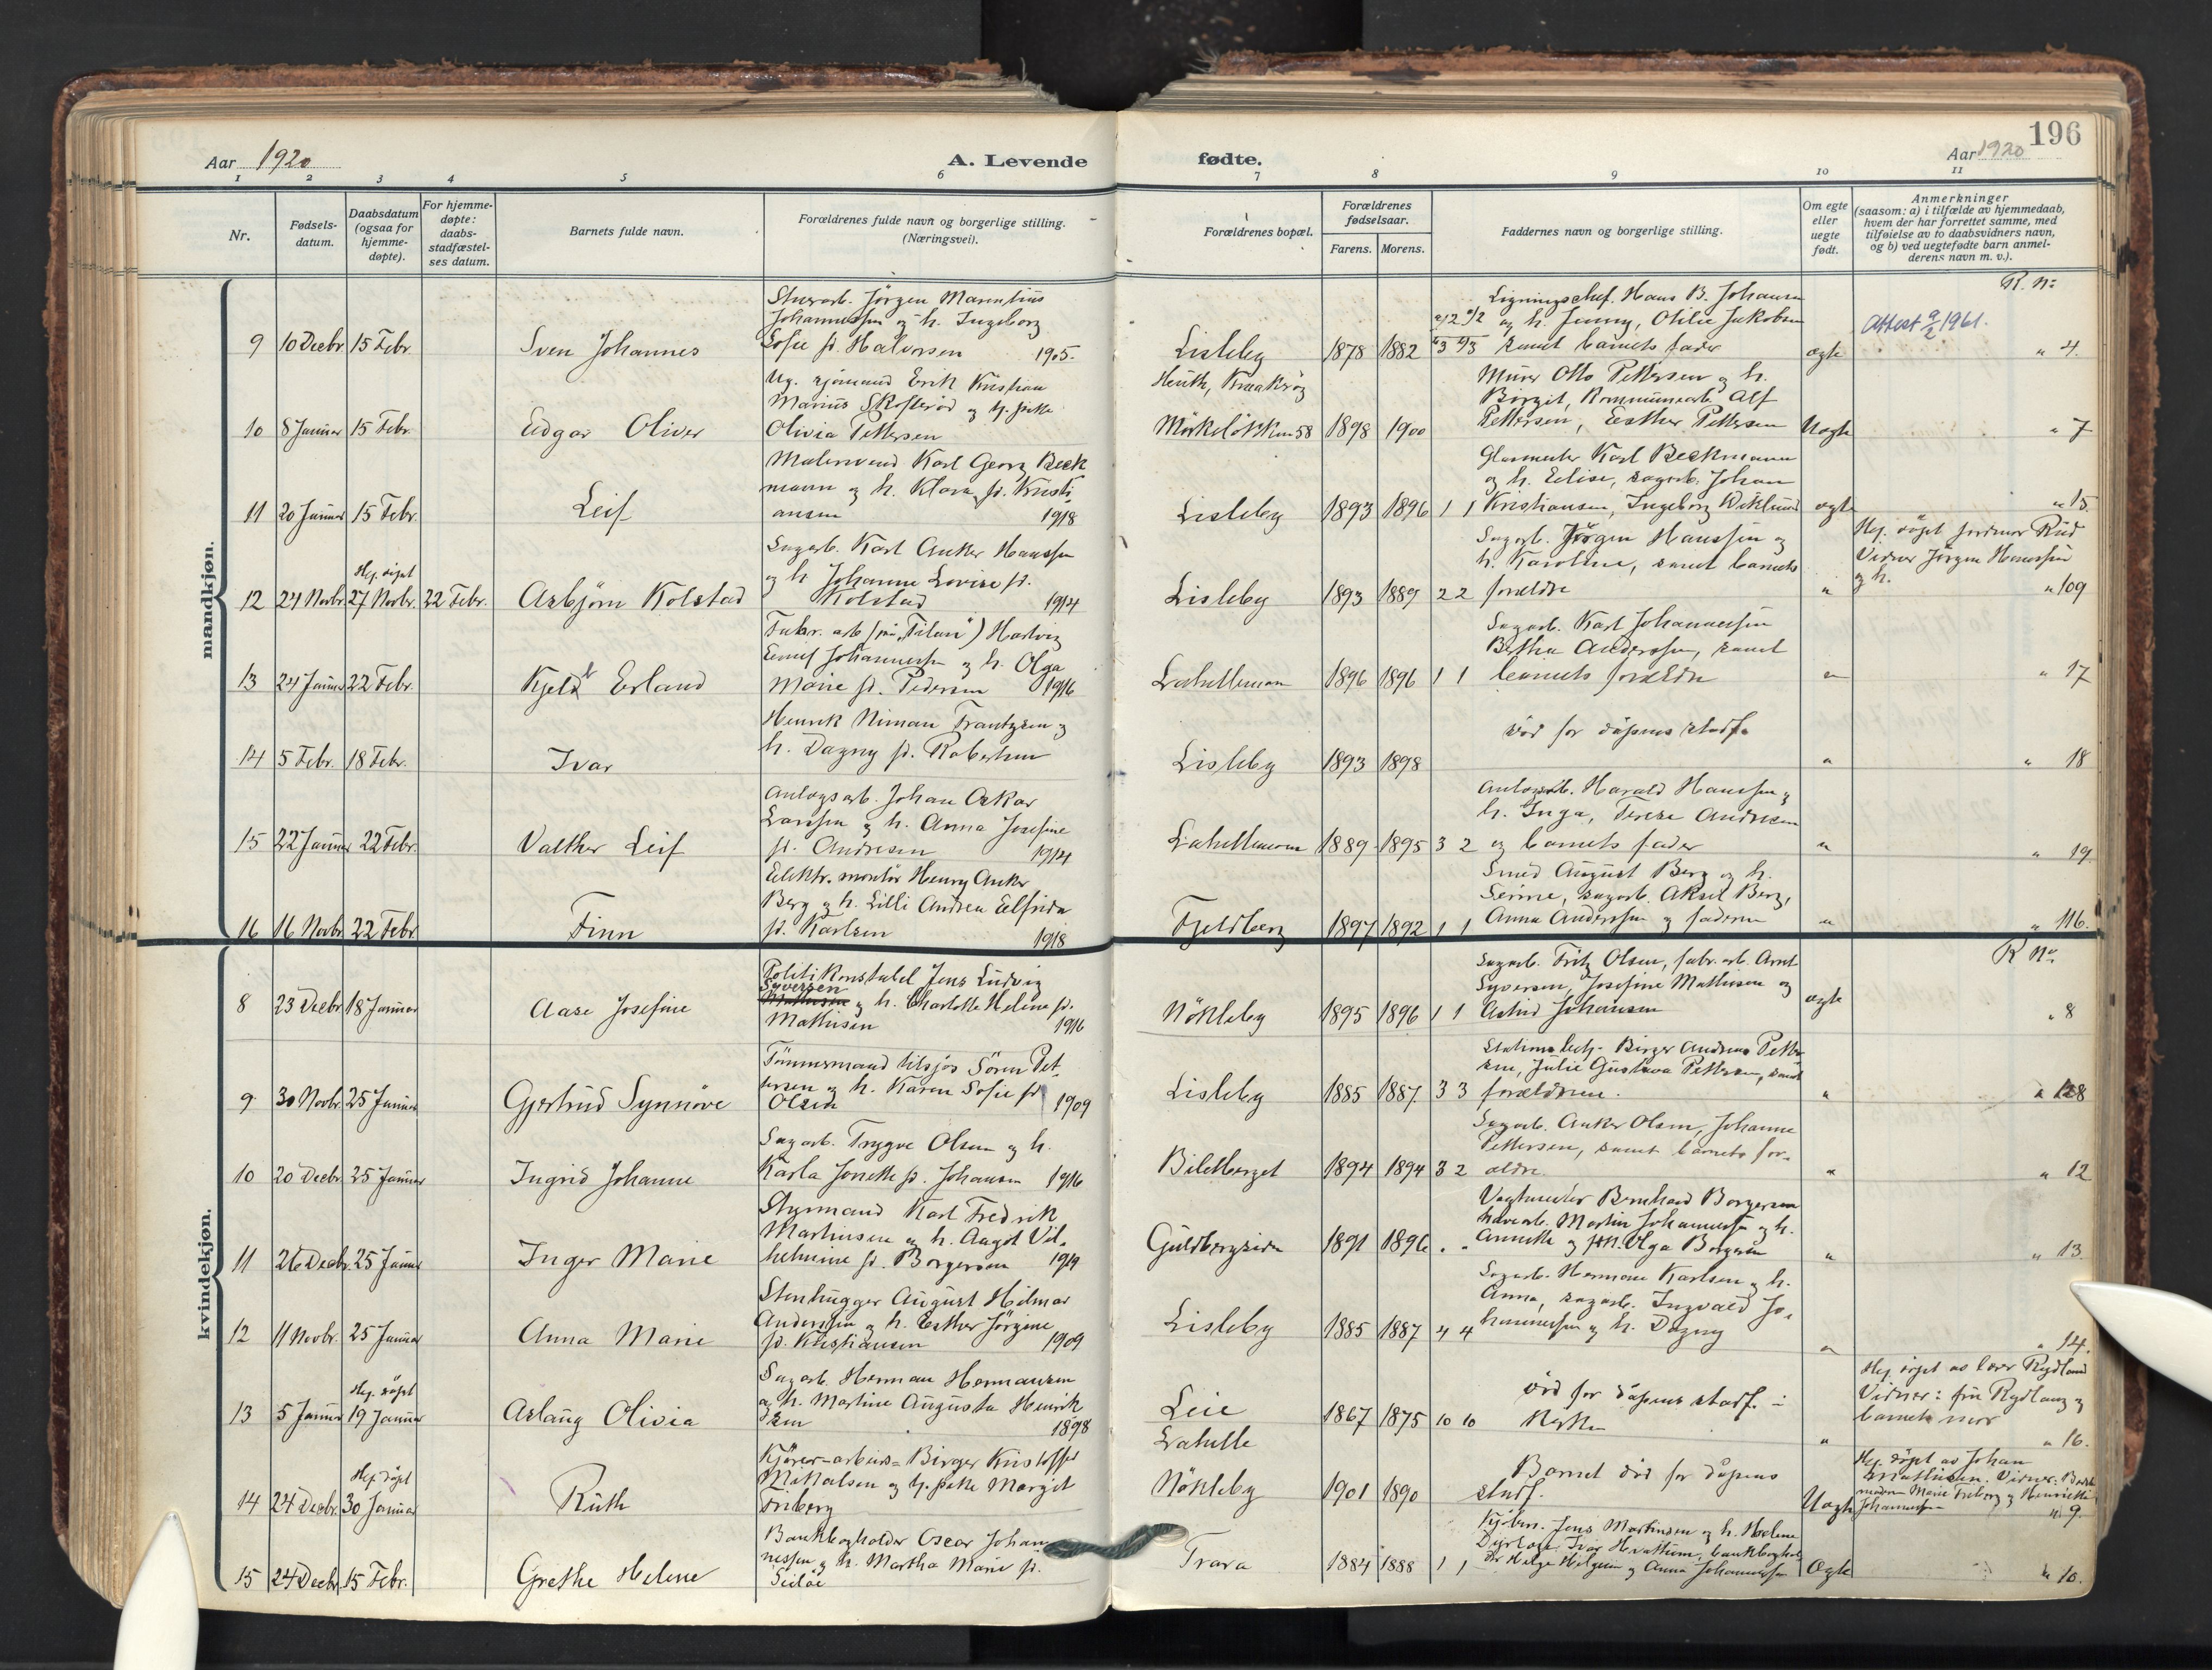 196
Aar 1920
A. Levende
fødte.
Aar 1920
1 2 3 4 5 6 7 8 9 10 11
Nr.
Fødsels-
datum.
Daabsdatum
(ogsaa for
hjemme-
døpte).
For hjemme-
døpte:
daabs-
stadfæstel-
ses datum.
Barnets fulde navn.
Forældrenes fulde navn og borgerlige stilling.
(Næringsvei).
Forældrenes bopæl.
Forældrenes
fødselsaar.
Farens. Morens.
Faddernes navn og borgerlige stilling.
Om egte
eller
uegte
født.
Anmerkninger
(saasom: a) i tilfælde av hjemmedaab,
hvem der har forrettet samme, med
tilføielse av to daabsvidners navn,
og b) ved uegtefødte barn anmel-
derens navn m. v.).
mandkjøn.
R. No
9 10 Decbr. 15 Febr. Sven Johannes
Jörgen Marentius
Johannessen og h. Ingeborg
Sofie f. Halvorsen 1905.
Lisleby 1878 1882
Ligningschef. Hans B. Johansen
og h. Jenny, Otilie Jakobsen
samt barnets fader
ægte
Attest 1961.
" 4.
10 8 Januar 15 Febr. Edgar Oliver
Ug. sjömand Erik Kristian
Marius Skofteröd og ug. pike
Olivia Pettersen
1898 1900
Murer Otto Pettersen og h.
Borgit, Kommunearb. Alf
Pettersen, Esther Pettersen
Uægte
" 7
11 20 Januar 15 Febr. Leif
Malersvend Karl Georg Beck
mann og h. Klara f. Kristi
ansen 1918
Lisleby 1893 1896 1 1
Glasmester Karl Beckmann
og h. Elise, sagarb. Johan
Kristiansen, Ingeborg Wiklund
ægte
" 15.
12 24 Novbr. Hj. döpt 27 Novbr. 22 Febr. Asbjörn Kolstad
Sagarb. Karl Anker Hanssen
og h. Johanne Lovise f.
Kolstad 1914
Lisleby 1893 1889 2 2
Sagarb. Jörgen Hanssen og
h. Karoline, samt barnets
forældre
"
Hj. döpt jordmor Rud
Vidner Jörgen Hanssen
og h.
" 109
13 24 Januar 22 Febr. Kjeld Erland
Fabr. arb (på "Titan") Hartvig
Johannessen og h. Olga
Marie f. Pedersen 1916
1896 1896 1 1
Sagarb. Karl Johannessen
Bertha Anderssen, samt
barnets forældre
"
" 17
14 5 Febr. 18 Febr. Ivar
Henrik Niman Frantzsen og
h. Dagny f. Robertsen
Lisleby 1893 1898
död för dåpens stadf.
"
" 18
15 22 Januar 22 Febr. Valther Leif
Anlægsarb. Johan Oskar
Larssen og h. Anna Josefine
f. Andresen 1914
1889 1895 3 2
Anlægsarb. Harald Hanssen og
h. Inga, Terese Andresen
og barnets fader
"
" 19.
16 16 Novbr. 22 Febr. Finn
Elektr. montör Henry Anker
Berg og h. Lilli Andrea Elfrida
f. Karlsen 1918
Fjeldberg 1897 1892 1 1
Smed August Berg og h.
sagarb. Aksel Berg,
Anna Anderssen og faderen
"
" 116.
kvindekjøn.
R No.
8 23 Decbr. 18 Januar Aase Josefine
Politikonstabel Jens Ludvig
Syversen
og h. Charlotte Helene f.
Mathisen 1916
Nökleby 1895 1896 1 1
Sagarb. Fritz Olsen, fabr. arb. Arnt
Syversen, Josefine Mathisen og
Astrid Johansen
ægte
" 8
9 30 Novbr. 25 Januar Gjertrud Synnöve
Tömmermand tilsjös Sören Pet-
ersen og h. Karen Sofie f.
Olsen 1909
Lisleby 1885 1887 3 3
Birger Andreas Petter
sen, Julie Gustava Pettersen, samt
forældrene.
"
" 128
10 20 Decbr. 25 Januar Ingrid Johanne
Sagarb. Trygve Olsen og h.
Karla Jonette f. Johansen 1916
Biletberget 1894 1894 3 2
Sagarb. Anker Olsen, Johanne
Pettersen, samt barnets for-
ældre.
"
" 12
11 26 Decbr. 25 Januar Inger Marie
Styrmand Karl Fredrik
Martinsen og h. Aagot Vil-
helmine f. Borgersen 1919
Guldbergsiden 1891 1896 " "
Vagtmester Bernhard Borgersen
Martin Johannessen og h.
Annette og frk. Olga Borgersen
"
" 13.
12 11 Novbr. 25 Januar Anna Marie
Stenhugger August Hilmar
Anderssen og h. Esther Jörgine
f. Kristiansen 1909
Lisleby 1885 1887 4 4
Sagarb. Hermann Karlsen og h.
Anna, sagarb. Ingvald Jo-
hannessen og h. Dagny
"
" 14.
13 5 Januar Hj. döpt 19 Januar Aslaug Olivia
Sagarb. Herman Hermansen
og h. Martine Augusta Henrik
sen 1898
Leie
Lahelle
1867 1875 10 10
död for dåpens stadf. i
kirken
"
Hj. döpt av lærer Rydland
Vidner: fru Rydland og
barnets mor
" 16.
14 24 Decbr. Hj. döpt 30 Januar Ruth
Kjörer-arbeids- Birger Kristoffer
Mikalsen og ug. pike Margit
Friberg
Nökleby 1901 1890
Barnet död for dåpens
stadf.
Uægte
Hj. döpt av Johan
Mathisen. Vidner: Beste
moderen Marie Friberg og Henriette
Johannessen
" 9.
15 24 Decbr. 15 Febr. Grethe Helene
Bankbogholder Oscar Johan
nessen og h. Martha Marie f.
Trara 1884 1888 1 1
Kjöbm. Jens Martinsen og h. Helene
Dyrlæge Ivar Hvattum, bankboghol
der Helge Helgesen og Anna Johannessen
Ægte
" 10.